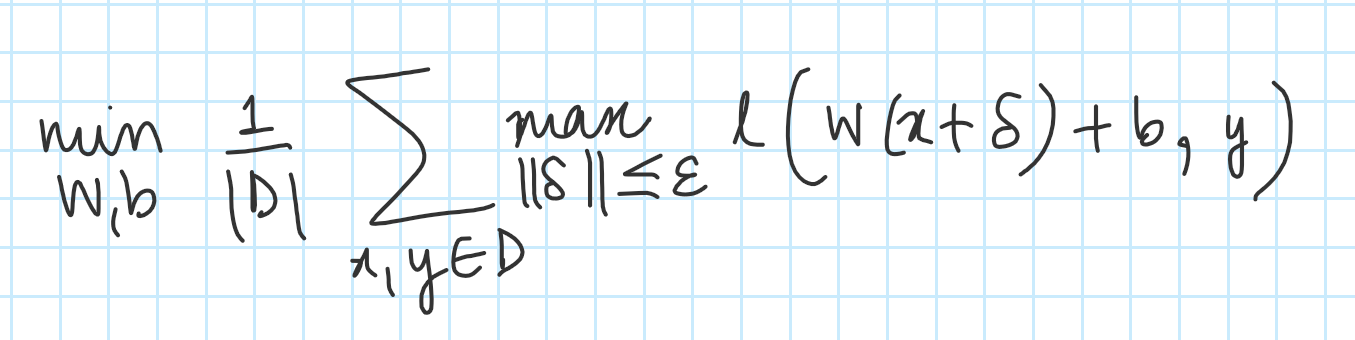 min_{W,b} \frac{1}{|D|} \sum_{x,y∈D} max_{||δ||≤ε} l(W(x+δ)+b, y)